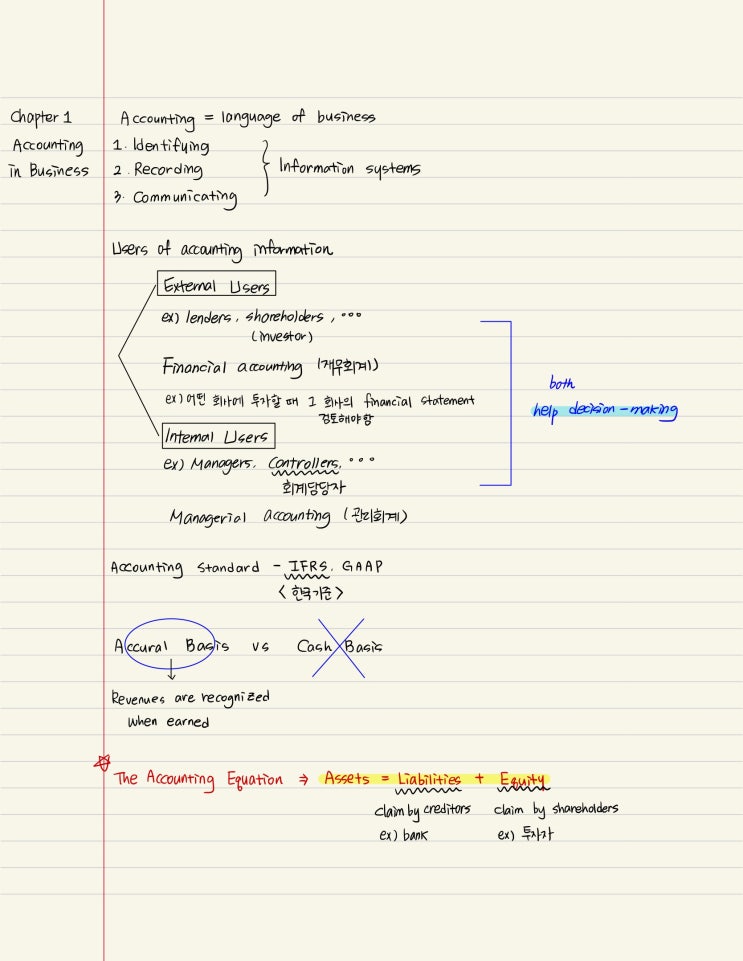 Chapter 1
Accounting
in Business
Accounting = language of business
1. Identifying
2. Recording
3. Communicating
Information systems
Users of accounting information
External Users
ex) lenders, shoreholders, ...
(investor)
Financial accounting (재무회계)
ex) 어떤 회사에 투자할 때 그 회사의 financial statement
검토해야 함
Internal Users
ex) Managers, Controllers, ...
회계담당자
Managerial accounting (관리회계)
both
help decision-making
Accounting Standard - IFRS, GAAP
<한국기준>
Accural Basis vs Cash Basis
Revenues are recognized
when earned
The Accounting Equation ⇒ Assets = Liabilities + Equity
claim by creditors claim by shareholders
ex) bank ex) 투자자